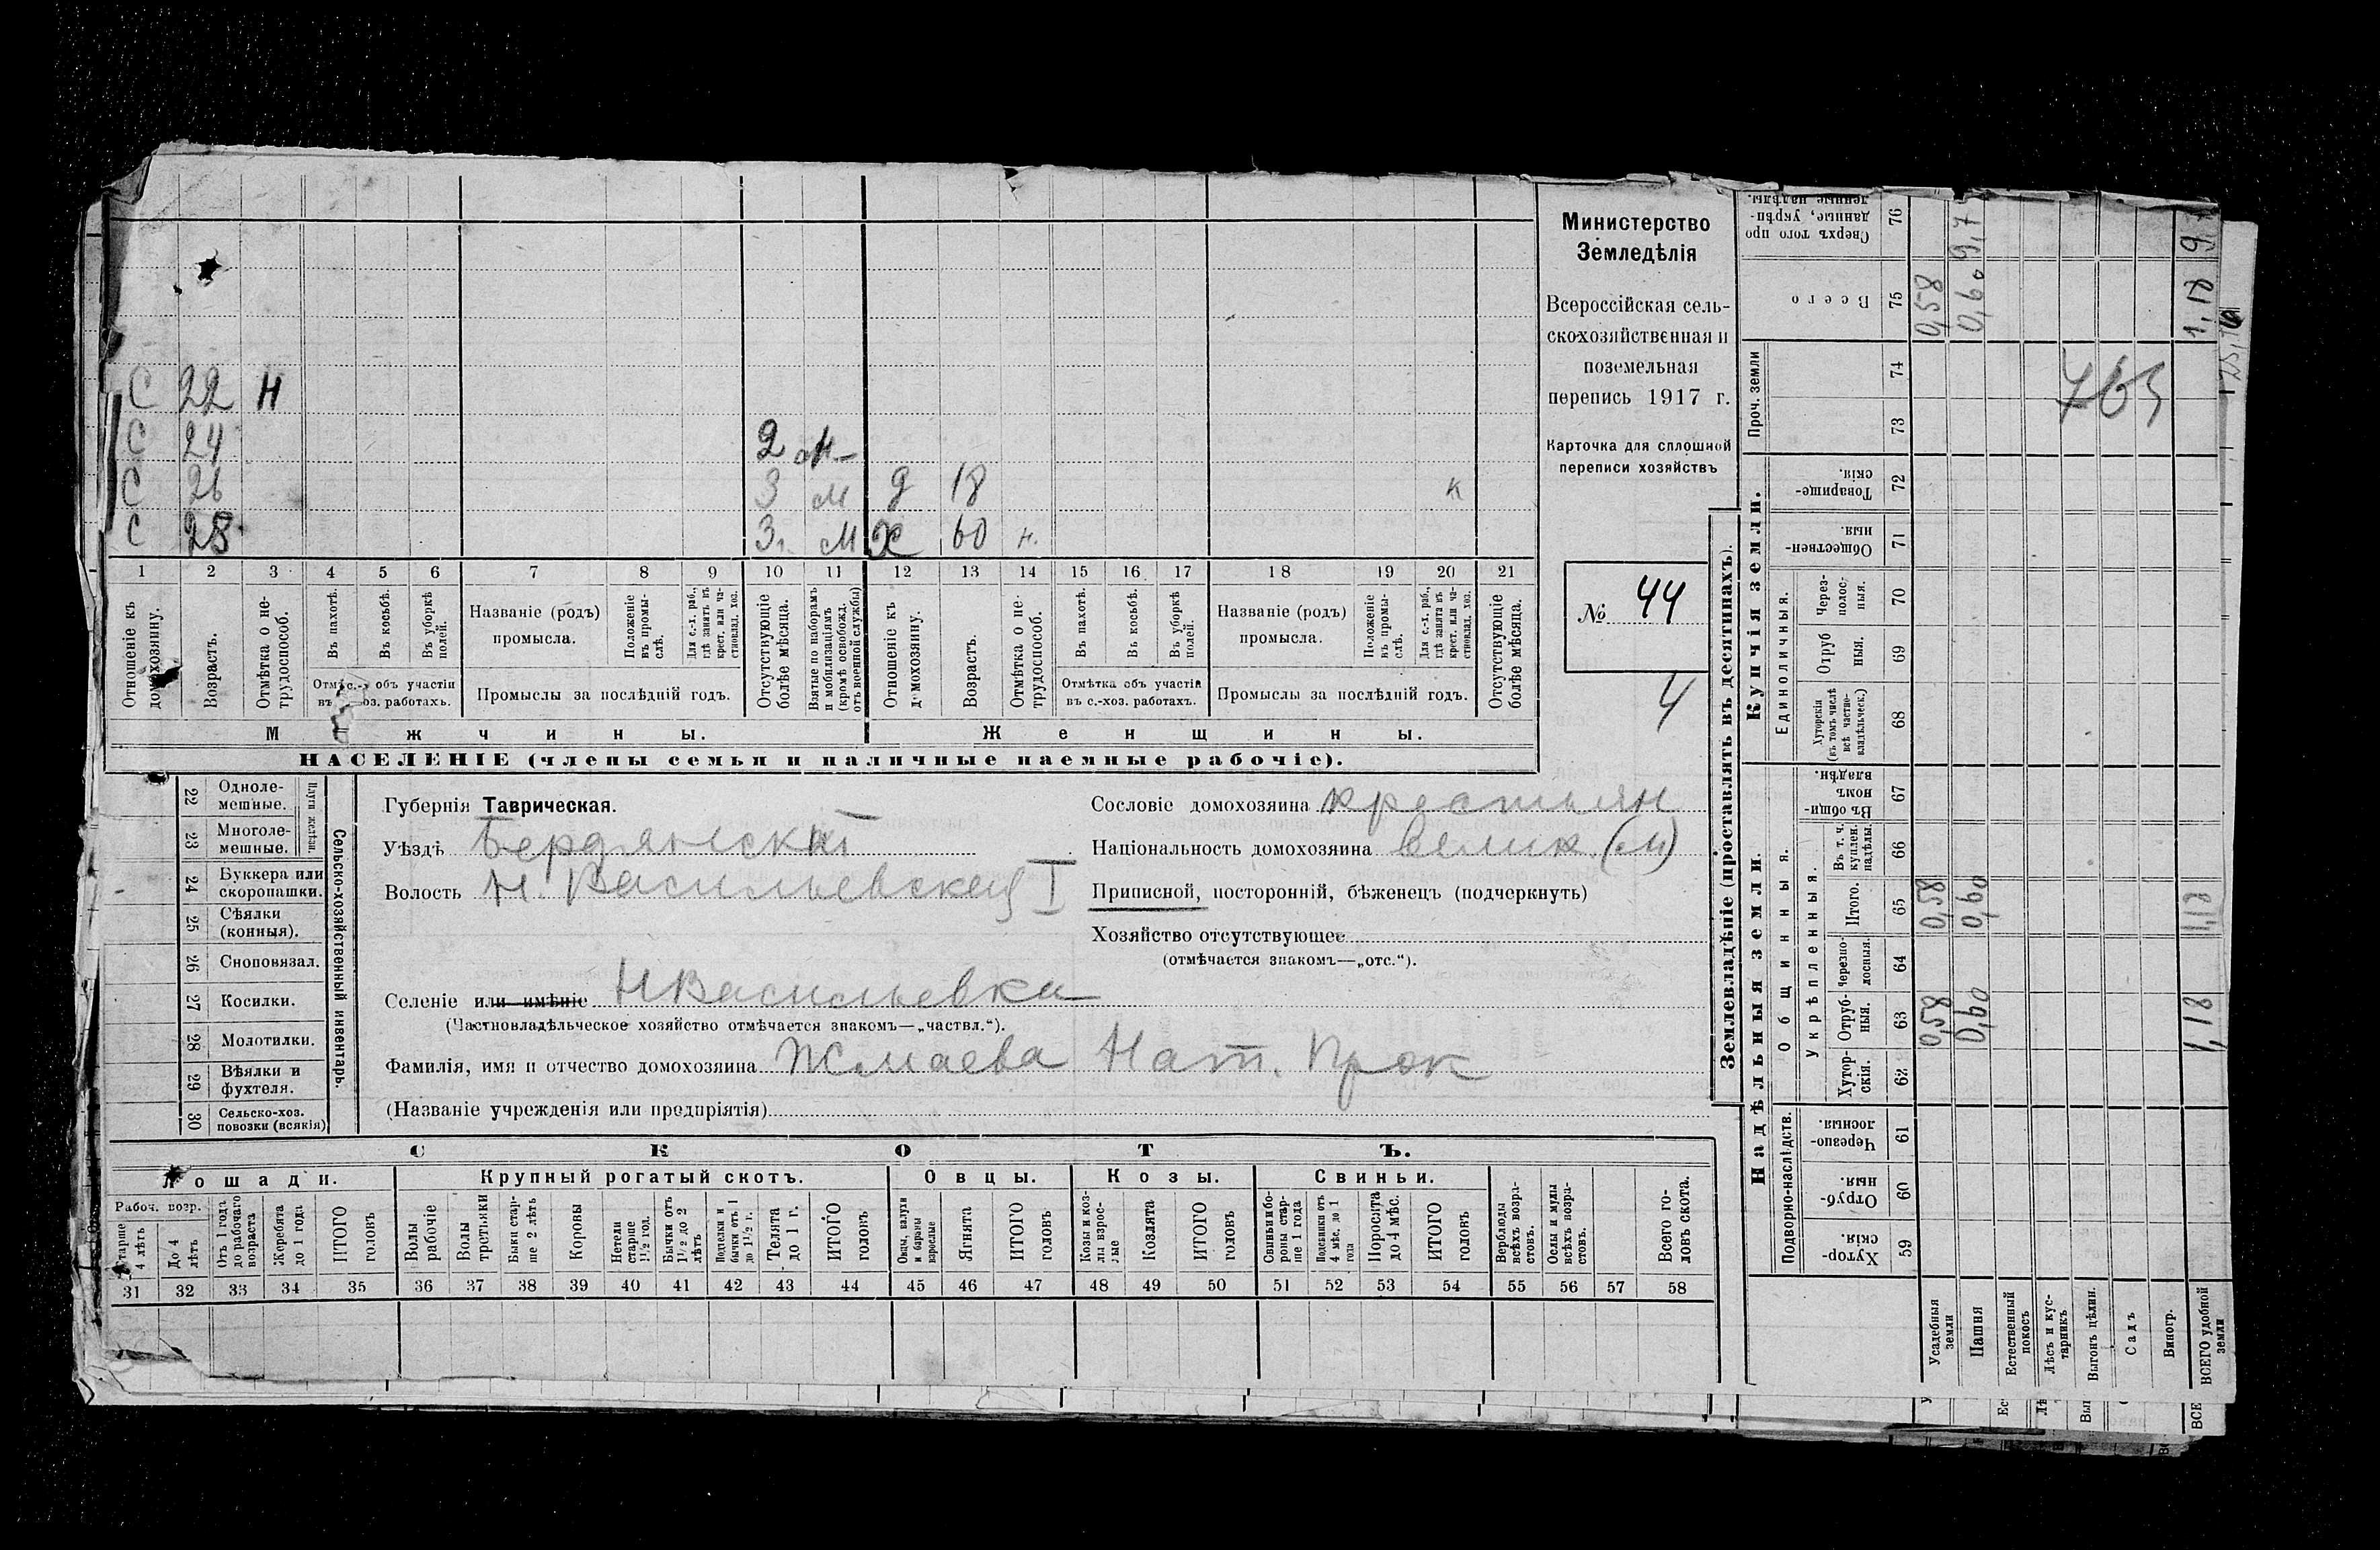 Министерство
Земледѣлія
Всероссійская сель-
скохозяйственная и
поземельная
перепись 1917 г.
Карточка для сплошной
переписи хозяйствъ
№ 44
4
С 22 Н
С 24 2 м
С 26 3 м д 18 к
С 28 3 г. м Х 60 н.
1 2 3 4 5 6 7 8 9 10 11 12 13 14 15 16 17 18 19 20 21
Отношеніе къ домохозяину.
Возрастъ.
Отмѣтка о не-трудоспособ.
Въ пахотѣ.
Въ косьбѣ.
Въ уборкѣ полей.
Названіе (родъ) промысла.
Положеніе въ промы-слѣ.
Для с.-х. раб., гдѣ занятъ въ крест. или ча-стновлад. хоз.
Отсутствующіе болѣе мѣсяца.
Взятые по наборамъ и мобилизаціямъ (кромѣ освобожд. отъ военной службы)
Отношеніе къ домохозяину.
Возрастъ.
Отмѣтка о не-трудоспособ.
Въ пахотѣ.
Въ косьбѣ.
Въ уборкѣ полей.
Названіе (родъ) промысла.
Положеніе въ промы-слѣ.
Для с.-х. раб., гдѣ занята въ крест. или ча-стновлад. хоз.
Отсутствующіе болѣе мѣсяца.
объ участіи
въ оз. работахъ.
Промыслы за послѣдній годъ.
Отмѣтка объ участіи
въ с.-хоз. работахъ.
Промыслы за послѣдній годъ.
М жчины.
Женщины.
НАСЕЛЕНІЕ (члены семьи и наличные наемные рабочіе).
22 Одноле-мешные.
23 Многоле-мешные.
Плуги желѣзн.
24 Буккера или скоропашки.
25 Сѣялки (конныя).
26 Сноповязал.
27 Косилки.
28 Молотилки.
29 Вѣялки и фухтеля.
30 Сельско-хоз. повозки (всякія)
Сельско-хозяйственный инвентарь.
Губернія Таврическая.
Уѣздъ Бердянскій
Волость Н. Васильевская I
Сословіе домохозяина крестьян
Національность домохозяина велик. (м)
Приписной, посторонній, бѣженецъ (подчеркнуть)
Хозяйство отсутствующее
(отмѣчается знакомъ—„отс.“).
Селеніе или имѣніе НВасильевка
(Частновладѣльческое хозяйство отмѣчается знакомъ—„частвл.“).
Фамилія, имя и отчество домохозяина Жмаева Нат. Прок
(Названіе учрежденія или предпріятія)
СКОТЪ.
Лошади.
Крупный рогатый скотъ.
Овцы.
Козы.
Свиньи.
Рабоч. возр.
Старше 4 лѣтъ
До 4 лѣтъ
Отъ 1 года до рабочаго возраста
Жеребята до 1 года
ИТОГО головъ
Волы рабочіе
Волы третьяки
Быки стар-ше 2 лѣтъ
Коровы
Нетели старше 1½ год.
Бычки отъ 1½ до 2 лѣтъ
Подтелки и бычки отъ 1 до 1½ г.
Телята до 1 г.
ИТОГО головъ
Овцы, валухи и бараны взрослые
Ягнята
ИТОГО головъ
Козы и коз-лы взрос-лые
Козлята
ИТОГО головъ
Свиньи и бо-ровы стар-ше 1 года
Подсвинки отъ 4 мѣс. до 1 года
Поросята до 4 мѣс.
ИТОГО головъ
Верблюды всѣхъ возра-стовъ.
Ослы и мулы всѣхъ возра-стовъ.
Всего го-ловъ скота.
31 32 33 34 35 36 37 38 39 40 41 42 43 44 45 46 47 48 49 50 51 52 53 54 55 56 57 58
Землевладѣніе (проставлять въ десятинахъ).
Надѣльныя земли.
Купчія земли.
Проч. земли
Подворно-наслѣдств.
Общинныя.
Укрѣпленныя.
Единоличныя.
Сверхъ того про
данные, укрѣп-
ленные надѣлы.
76
Всего 75
74
73
Товарище-скія. 72
Обществен-ныя. 71
Через-полос-ныя. 70
Отруб ныя. 69
Хуторскія (въ томъ числѣ всѣ частно-владѣльческ.) 68
Въ общи-номъ владѣн. 67
Въ т. ч. куплен. надѣлы. 66
Итого. 65
Черезпо-лосныя. 64
Отруб-ныя. 63
Хутор-скія. 62
Черезпо-лосныя. 61
Отруб-ныя. 60
Хутор-скія. 59
Усадебныя земли
Пашня
Естественный покосъ
Лѣсъ и кус-тарникъ
Выгонъ цѣлин.
Садъ
Виногр.
ВСЕГО удобной земли
0,58 0,58 0,58
0,60 0,60 0,60 9,7
1,18 1,18 1,18 9